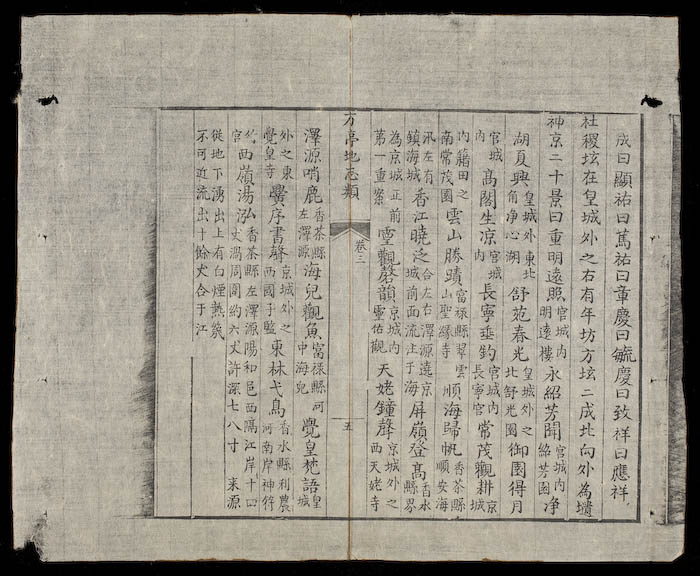 成曰顯祐曰篤祐曰章慶曰毓慶曰致祥曰應祥
社稷壇在皇城外之右有年坊方壇二成北向外為壝
神京二十景曰重明遠照宮城内明遠樓永紹芳聞宮城内紹芳園净
湖夏興皇城外東北角净心湖舒苑春光皇城外之北舒光園御園得月
宮城内髙閣生凉宮城内長寧垂釣宮城内長寧宮常茂觀耕京城
内籍田之南常茂園雲山勝蹟富禄縣翠雲山聖緣寺順海歸帆香茶縣順安海
汛左有鎮海城香江曉泛合左右澤源遶京城前面流注于海屏嶺登髙香水縣界
為京城正前第一重案靈觀磬韻京城内靈佑觀天姥鐘聲京城外之西天姥寺
方亭地志類 卷三 五
澤源哨鹿香茶縣左澤源海兒觀魚富禄縣河中海兒覺皇梵語皇城
外之東覺皇寺黌序書聲京城外之西國子監東林弋鳥香水縣利農河南岸神符
官西嶺湯泓香茶縣左澤源陽和邑西隔江岸十四丈渦周圍約六丈許深七八寸来源
從地下湧出上有白煙熱氣不可近流出十餘丈合于江